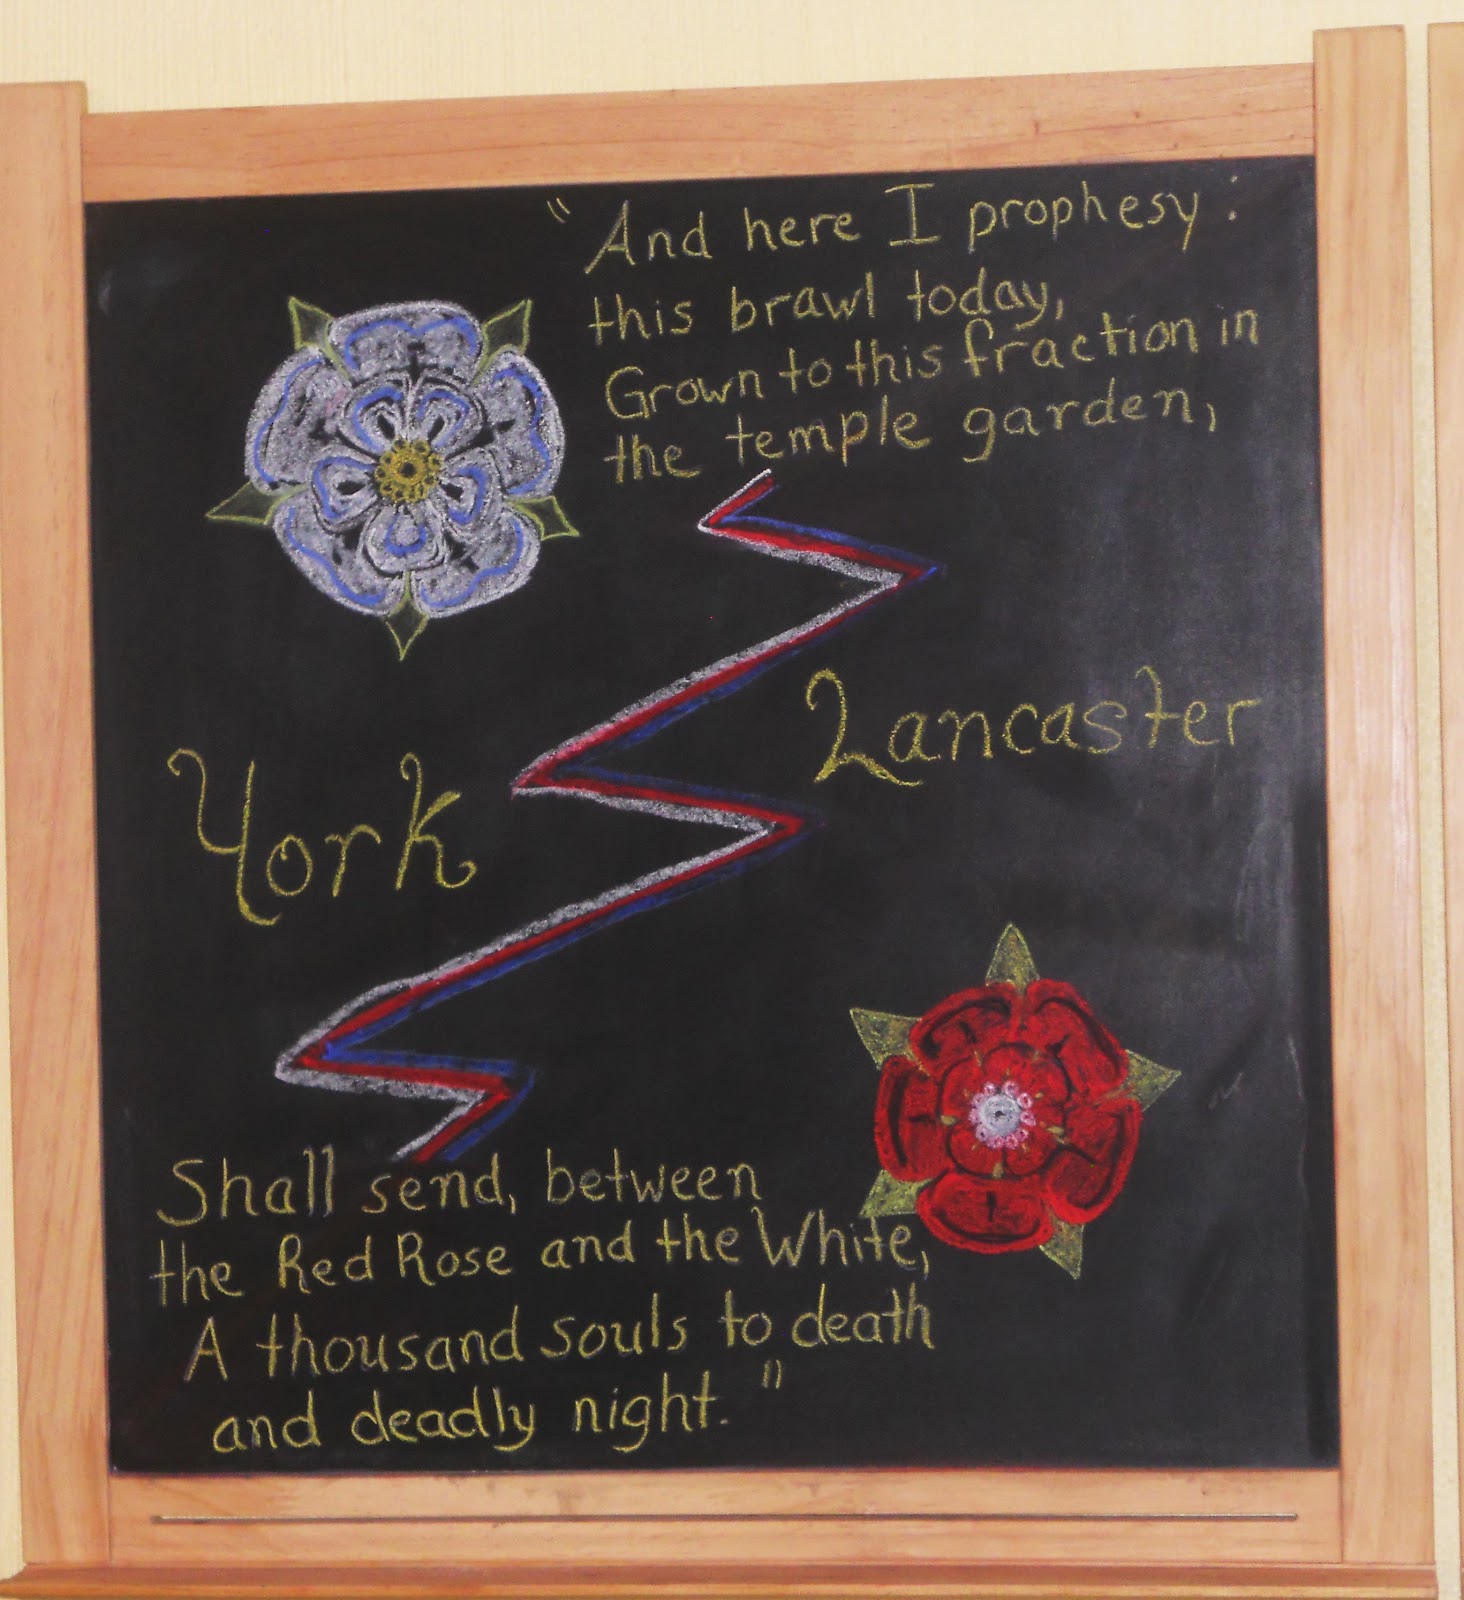 "And here I prophesy:
this brawl today,
Grown to this fraction in
the temple garden,
Lancaster
York
Shall send, between
the Red Rose and the White,
A thousand souls to death
and deadly night."